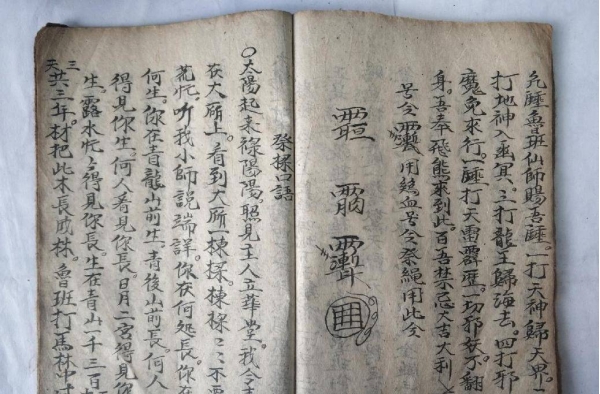 先锤魯班仙師賜吾锤。一打天神歸天界。二
打地神入幽冥。三打龍王歸海去。四打邪
魔鬼來行。一锤打天雷霹靂。一切邪妖不翻
身。吾奉飛熊來到此。百吾禁忌大吉大利
号令 用鷄血号令祭繩用此令
祭樑口語
〇太陽起來祿陽陽。照見主人立華堂。我今
在大厠上。看到大厠一棟樑。棟樑〻〻不要
荒忙。听我小師說端詳。你在何处長。你在
何生。你在青龍山前生。青後山前長。何人
得見你生。何人看見你長。日月二宫得見你
生。露水忙〻得見你長。生在青山一千三百
三夫共三年。材把此木長成林。魯班打馬林中过